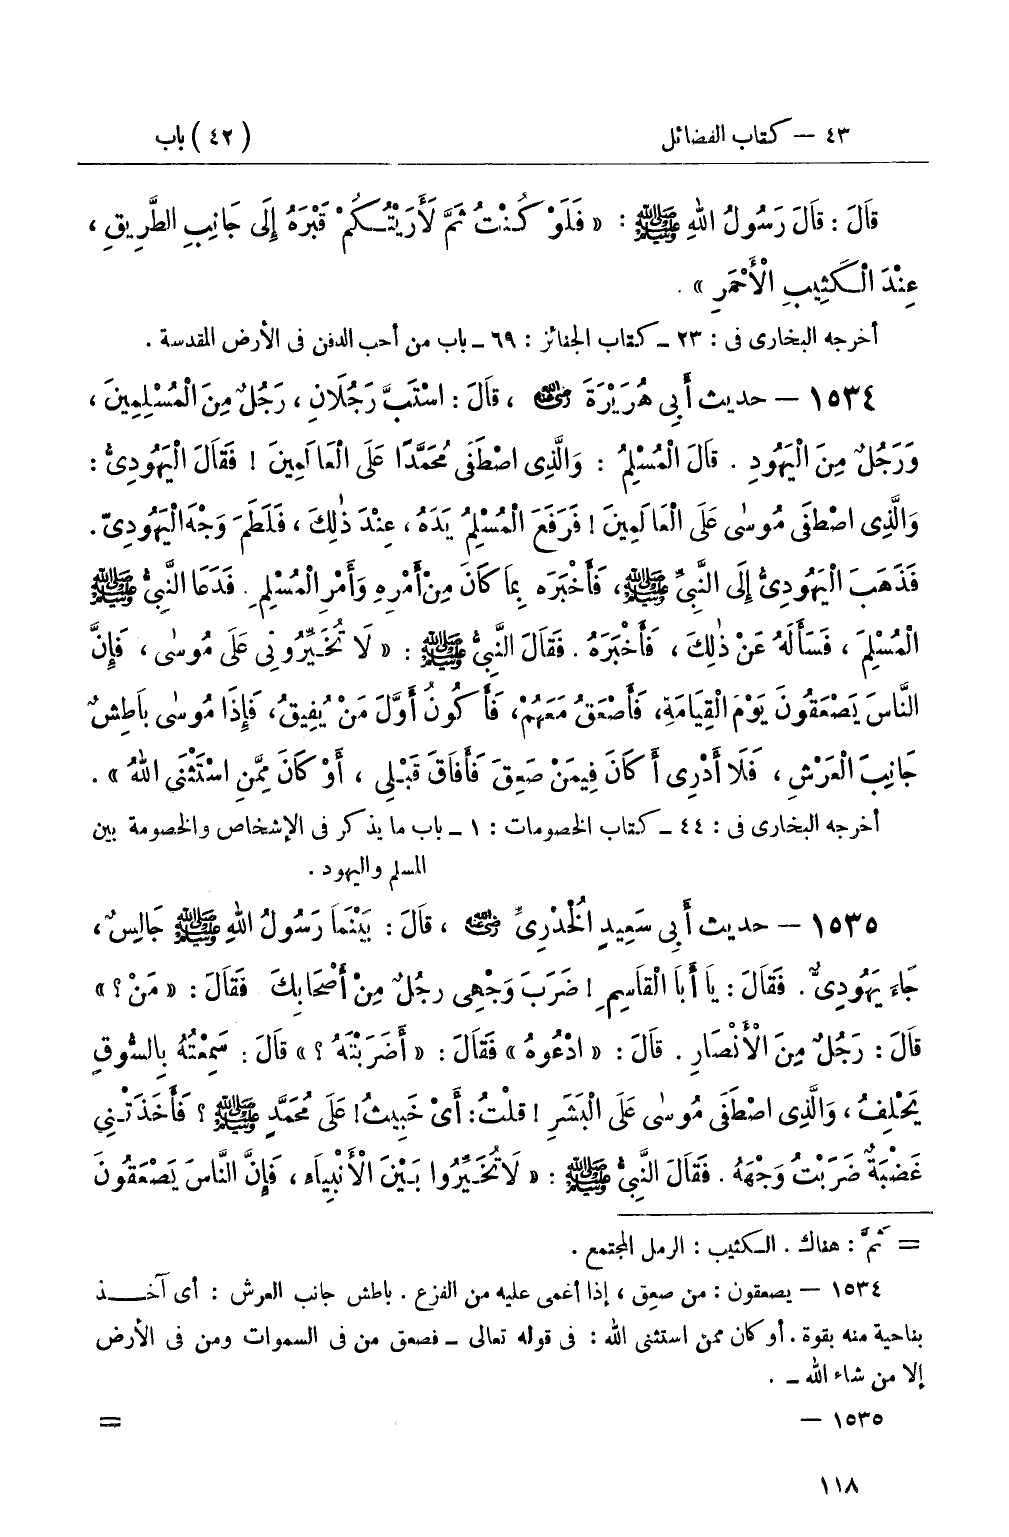 ٤٣ – كتاب الفضائل (٤٢) باب
قَالَ : قَالَ رَسُولُ اللهِ ﷺ : « فَلَوْ كُنْتُ ثَمَّ لَأَرَيْتُكُمْ قَبْرَهُ إِلَى جَانِبِ الطَّرِيقِ ،
عِنْدَ الْكَثِيبِ الْأَحْمَرِ » .
أخرجه البخارى فى : ٢٣ ـ كتاب الجنائز : ٦٩ ـ باب من أحب الدفن فى الأرض المقدسة .
١٥٣٤ – حديث أَبِى هُرَيْرَةَ رضي الله عنه ، قَالَ : اسْتَبَّ رَجُلَانِ ، رَجُلٌ مِنَ الْمُسْلِمِينَ ،
وَرَجُلٌ مِنَ الْيَهُودِ . قَالَ الْمُسْلِمُ : وَالَّذِى اصْطَفَى مُحَمَّدًا عَلَى الْعَالَمِينَ ! فَقَالَ الْيَهُودِىُّ :
وَالَّذِى اصْطَفَى مُوسٰى عَلَى الْعَالَمِينَ ! فَرَفَعَ الْمُسْلِمُ يَدَهُ ، عِنْدَ ذٰلِكَ ، فَلَطَمَ وَجْهَ الْيَهُودِىّ .
فَذَهَبَ الْيَهُودِىُّ إِلَى النَّبِىِّ ﷺ ، فَأَخْبَرَه بِمَا كَانَ مِنْ أَمْرِهِ وَأَمْرِ الْمُسْلِمِ . فَدَعَا النَّبِىُّ ﷺ
الْمُسْلِمَ ، فَسَأَلَهُ عَنْ ذٰلِكَ ، فَأَخْبَرَهُ . فَقَالَ النَّبِىُّ ﷺ : « لَا تُخَيِّرُونِى عَلَى مُوسٰى ، فَإِنَّ
النَّاسَ يَصْعَقُونَ يَوْمَ الْقِيَامَةِ ، فَأَصْعَقُ مَعَهُمْ ، فَأَكُونُ أَوَّلَ مَنْ يُفِيقُ ، فَإِذَا مُوسٰى بَاطِشٌ
جَانِبَ الْعَرْشِ ، فَلَا أَدْرِى أَكَانَ فِيمَنْ صَعِقَ فَأَفَاقَ قَبْلِى ، أَوْ كَانَ مِمَّنِ اسْتَثْنَى اللهُ » .
أخرجه البخارى فى : ٤٤ ـ كتاب الخصومات : ١ ـ باب ما يذكر فى الإشخاص والخصومة بين
المسلم واليهود .
١٥٣٥ – حديث أَبِى سَعِيدٍ الْخُدْرِىِّ رضي الله عنه ، قَالَ : بَيْنَمَا رَسُولُ اللهِ ﷺ جَالِسٌ ،
جَاءَ يَهُودِىٌّ . فَقَالَ : يَا أَبَا الْقَاسِمِ ! ضَرَبَ وَجْهِى رَجُلٌ مِنْ أَصْحَابِكَ فَقَالَ : « مَنْ ؟ »
قَالَ : رَجُلٌ مِنَ الْأَنْصَارِ . قَالَ : « ادْعُوهُ » فَقَالَ : « أَضَرَبْتَهُ ؟ » قَالَ : سَمِعْتُهُ بِالسُّوقِ
يَحْلِفُ ، وَالَّذِى اصْطَفَى مُوسٰى عَلَى الْبَشَرِ ! قلْتُ : أَىْ خَبِيثُ ! عَلَى مُحَمَّدٍ ﷺ ؟ فَأَخَذَتْنِى
غَضْبَةٌ ضَرَبْتُ وَجْهَهُ . فَقَالَ النَّبِىُّ ﷺ : « لَا تُخَيِّرُوا بَيْنَ الْأَنْبِيَاءِ ، فَإِنَّ النَّاسَ يَصْعَقُونَ
= ثَمَّ : هناك . الكثيب : الرمل المجتمع .
١٥٣٤ – يصعقون : من صعِق ، إذا أغمى عليه من الفزع . باطش جانب العرش : أى آخذ
بناحية منه بقوة . أو كان ممن استثنى الله : فى قوله تعالى ـ فصعق من فى السموات ومن فى الأرض
إلا من شاء الله ـ .
١٥٣٥ – =
١١٨